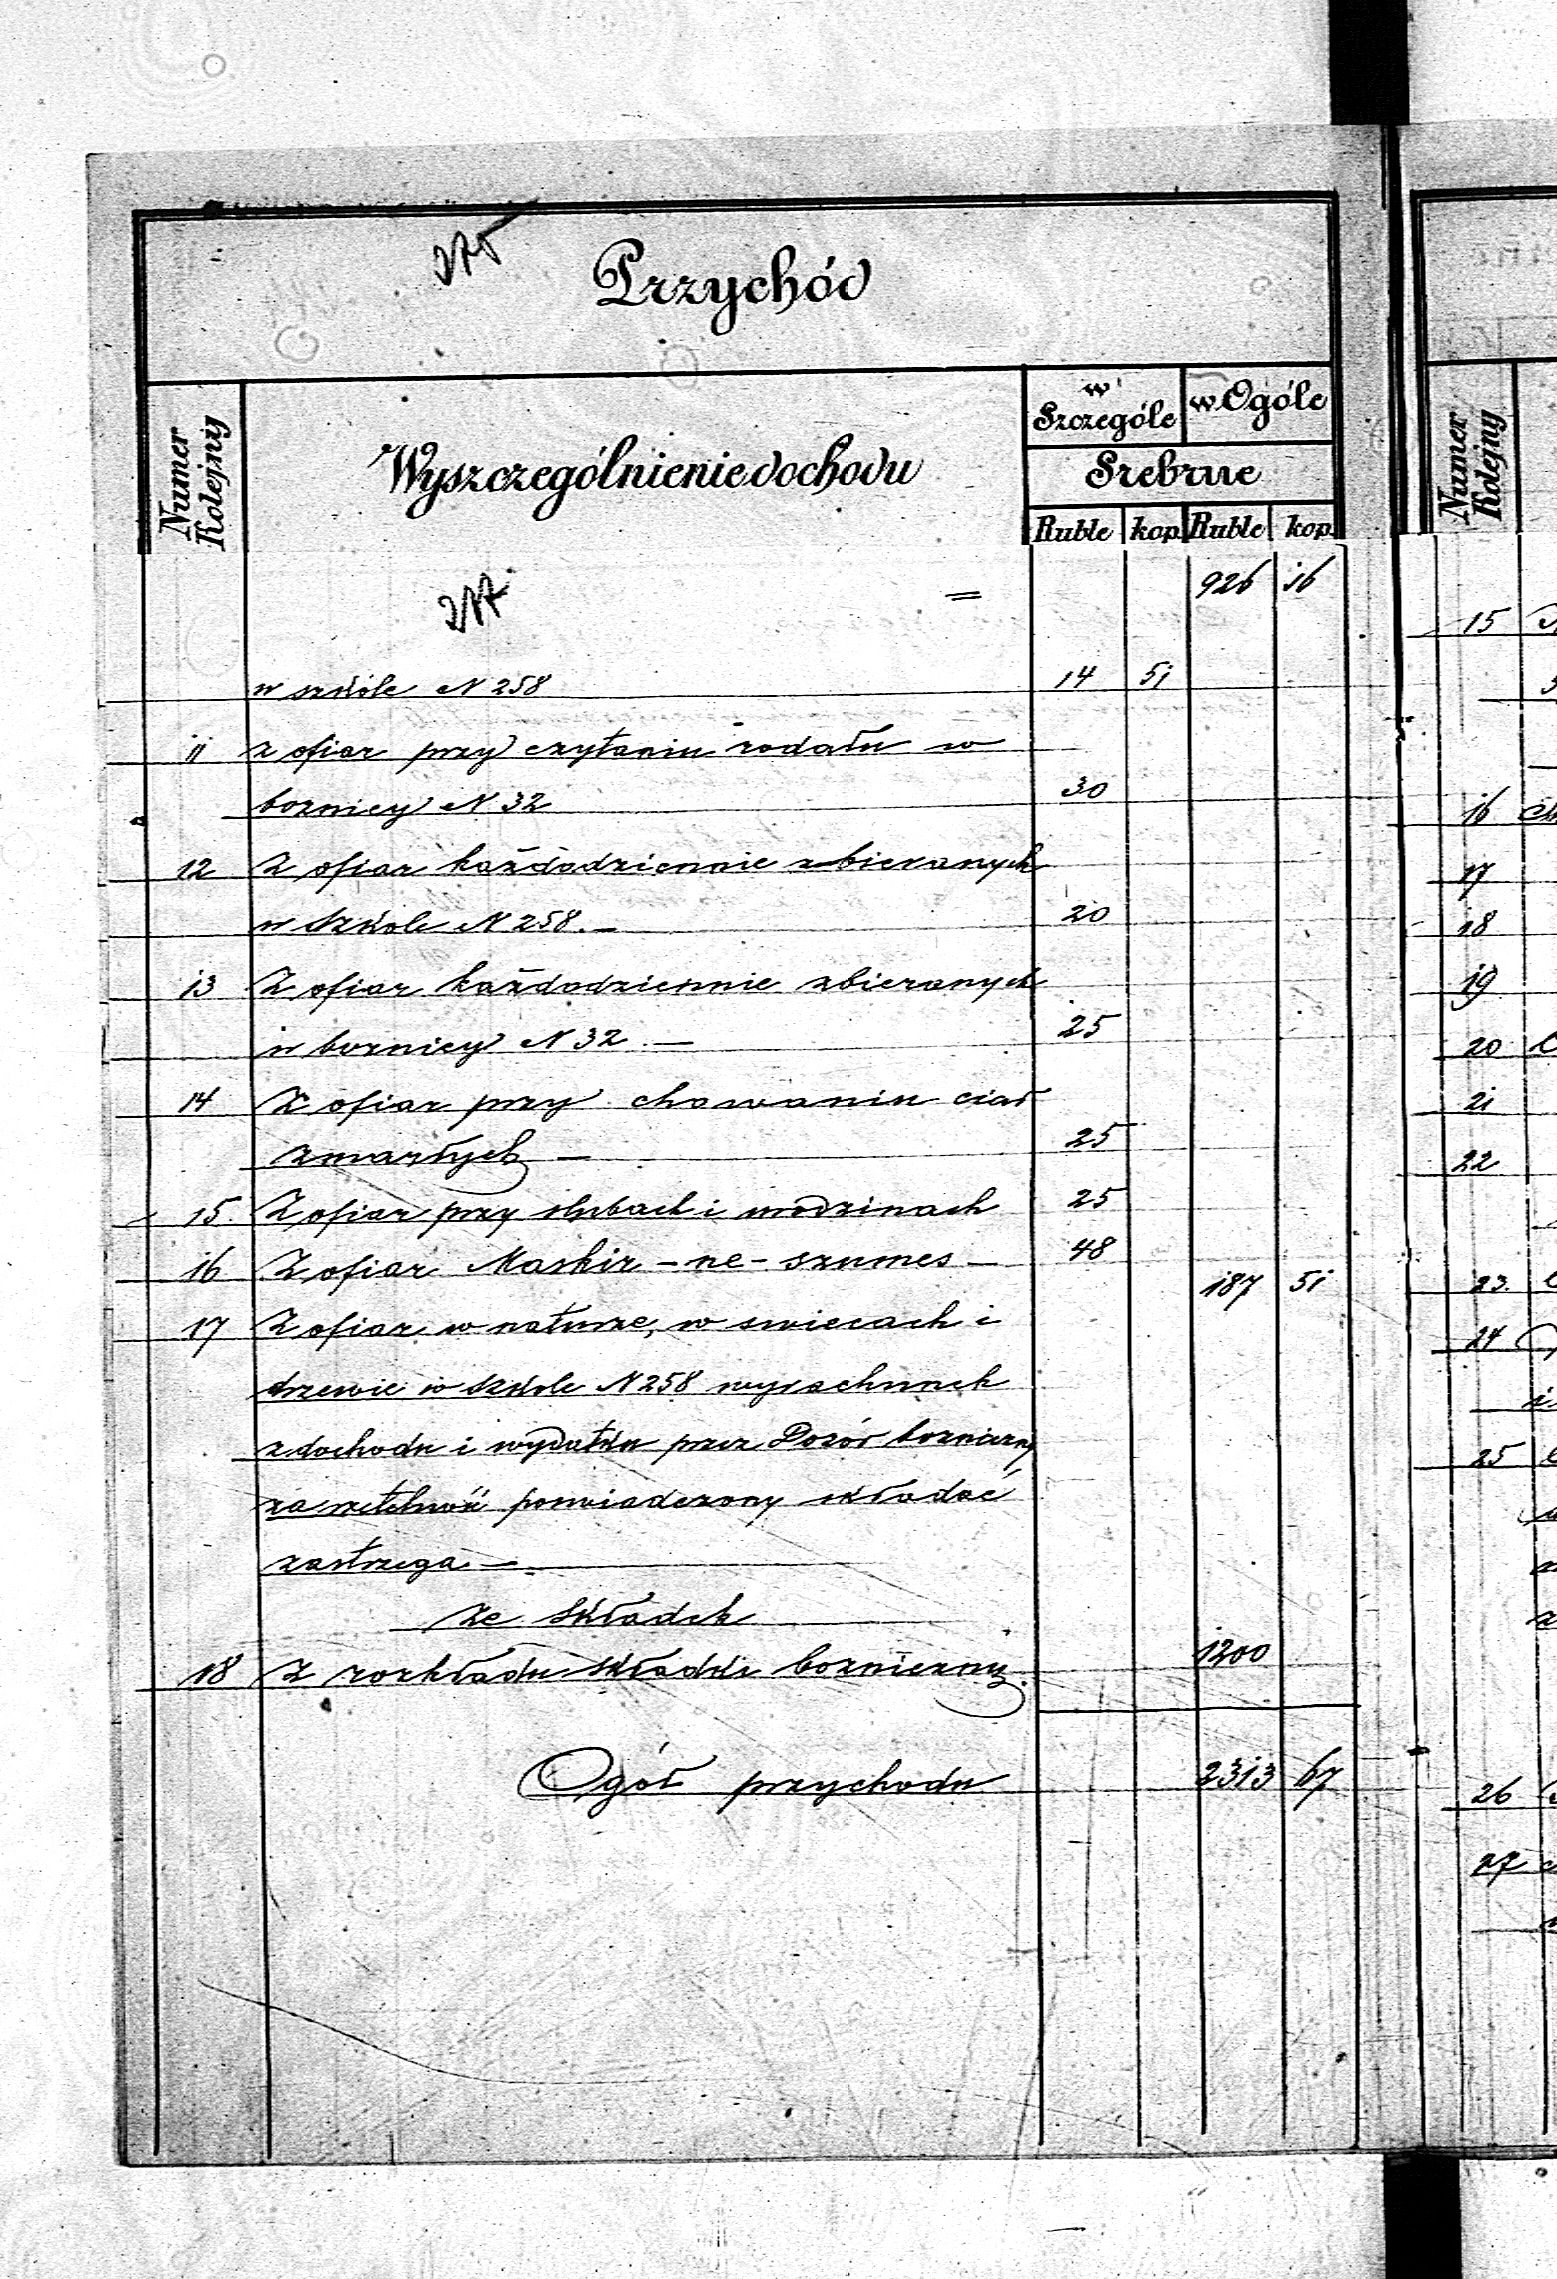 Przychód
Numer Kolejny
Wyszczególnienie dochodu
w Szczególe
w Ogóle
Srebrne
Ruble kop. Ruble kop.
926 16
w szkole N 258 14 51
11 z ofiar przy czytaniu rodału w
boznicy N 32 30
12 Z ofiar każdodziennie zbieranych
w szkole N 258. — 20
13 Z ofiar każdodziennie zbieranych
w boznicy N 32 — 25
14 Z ofiar przy chowaniu ciał
zmarłych — 25
15. Z ofiar przy slubach i urodzinach 25
16 Z ofiar Maskir - ne - szumes — 48
187 51
17 Z ofiar w naturze, w swiecach i
drzewie w szkole N 258 wyrachunek
z dochodu i wydatku przez Dozór bozniczny
za rzetelność poswiadczony składać
zastrzega —
ze składek
18 Z rozkładu składki boznicznej 1200
Ogół przychodu 2313 67
Numer Kolejny
15
16
17
18
19
20
21
22
23.
24
25
26
27